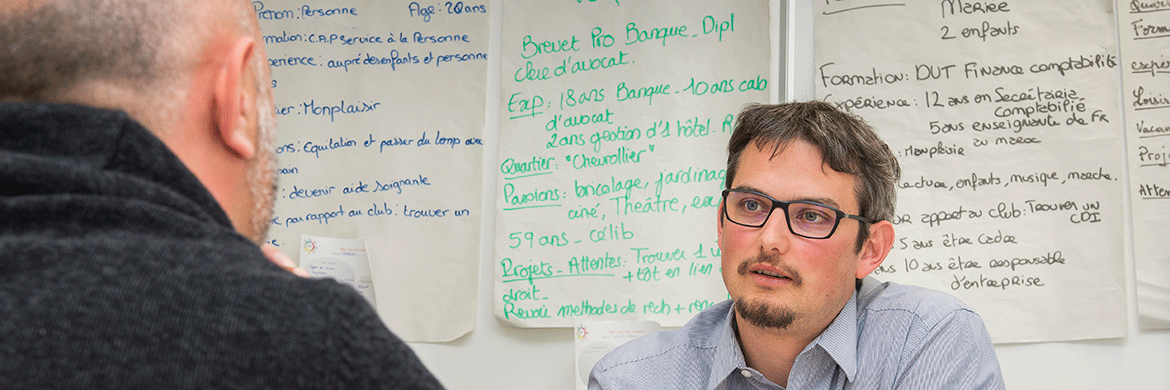 Prenom: Personne Age: 20ans
mation: C.A.P Service à la Personne
erience: aupré des enfants et personne
ier: Monplaisir
ons: Equitation et passer du temps avec
: devenir aide soignante
e par rapport au club: trouver un
Brevet Pro Banque_ Dipl
clerc d'avocat.
Exp: 18 ans Banque_ 10 ans cab
d'avocat
2 ans gestion d'1 hôtel.
Quartier: "Chevrollier"
Passions: bricolage, jardinag
ciné, Théâtre,
59 ans_ célib
Projets_ Attentes: Trouver 1
+ tôt en lien
droit_
Revoir methodes de rech +
Mariée
2 enfants
Formation: DUT Finance comptabilité
Expérience: 12 ans en Secrétariat
Comptabilité
5 ans enseignante de FR
: Monplaisir au maroc
lecture, enfants, musique, marche.
par rapport au club: Trouver un
CDI
5 ans être cadre
10 ans être responsable
d'entreprise
Quar
Form
expér
Loisi
Vacan
Proj
Atten